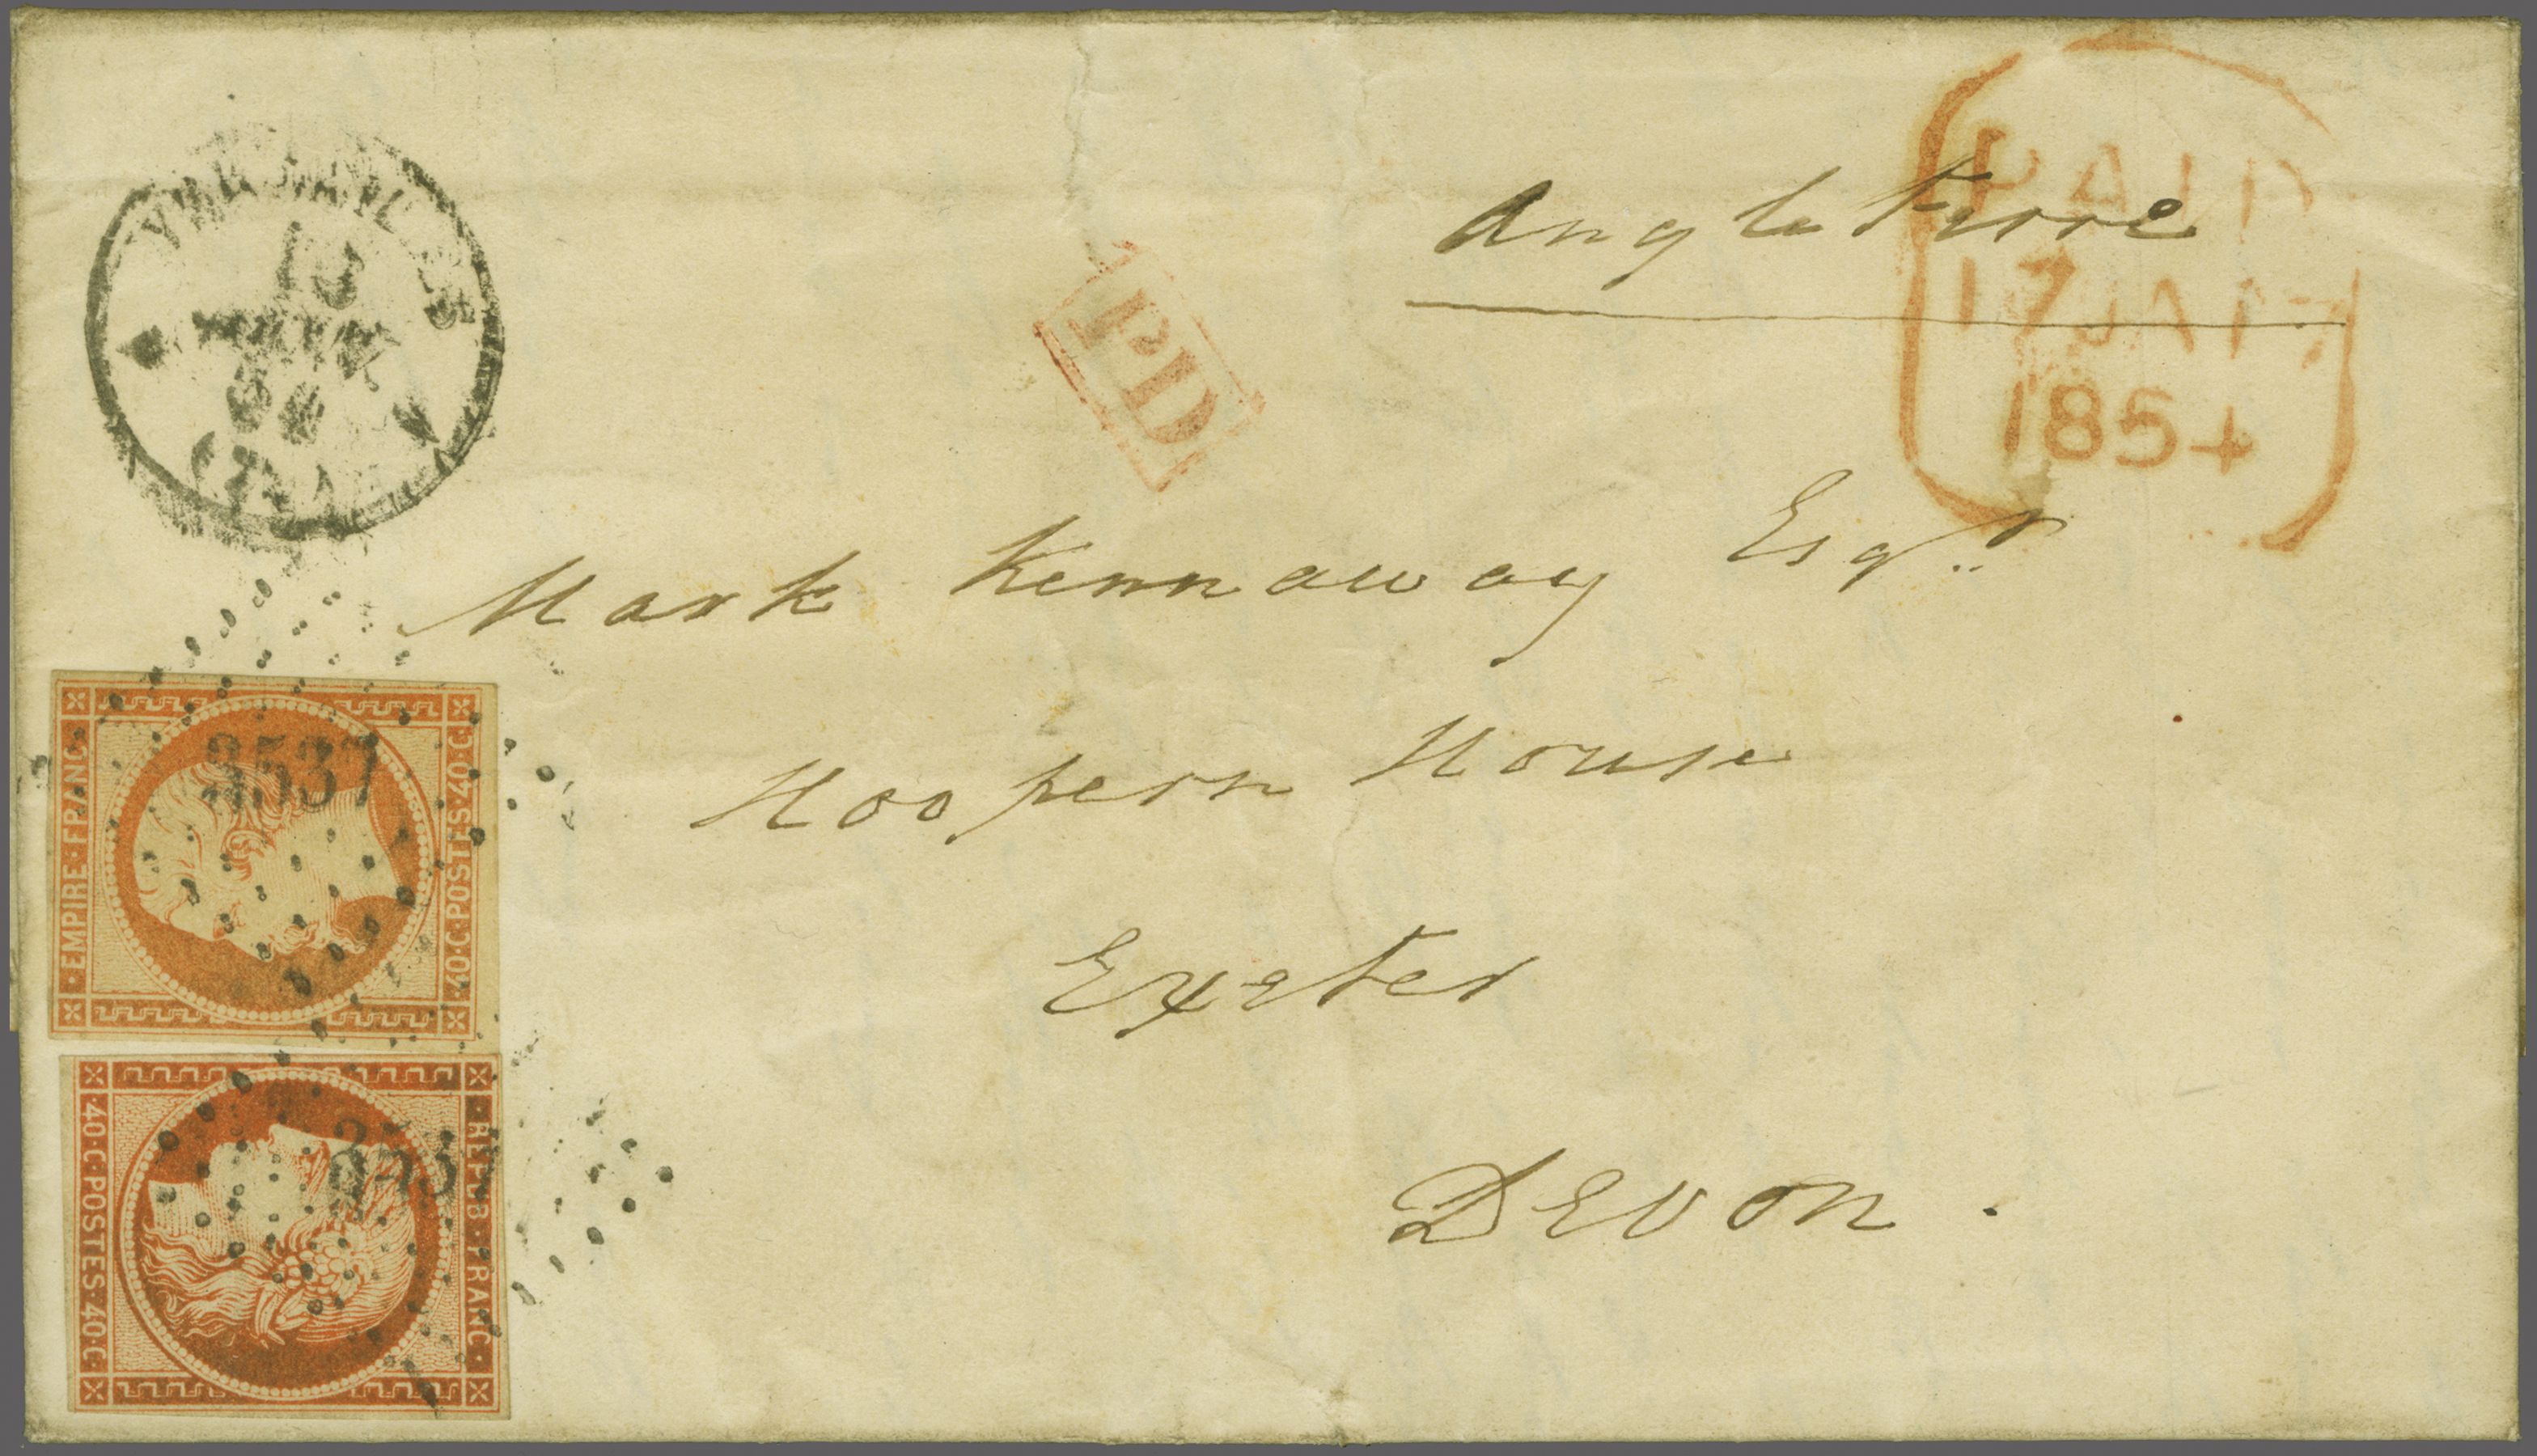 VERSAILLES
(72)
PD
Angleterre
PAID
17 JA 17
1854
Mark Kennaway Esqr.
Hoopern House
Exeter
DEVON.
EMPIRE·FRANC·
3537
40·C·POSTES·40·C·
40·C·POSTES·40·C·
3537
·REPUB·FRANC·